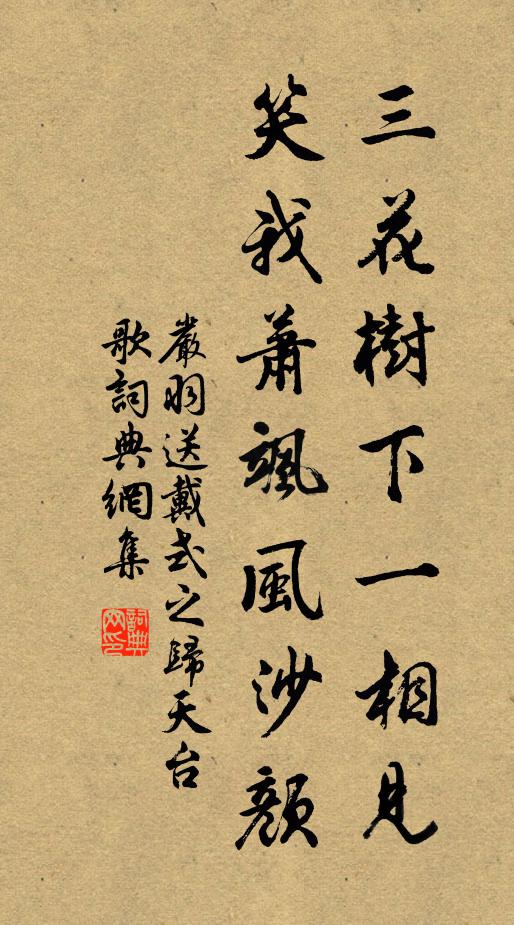 三花樹下一相見
笑我蕭颯風沙顏
嚴羽送戴式之歸天台
歌詞典網集
詞典网印